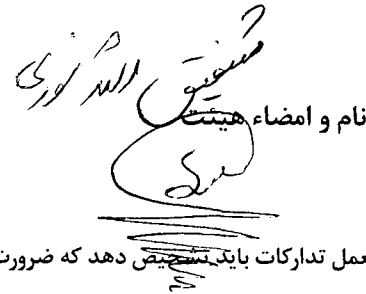 شفیق الله نوری
نام و امضاء هیئت
عمل تدارکات باید تشخیص دهد که ضرورت